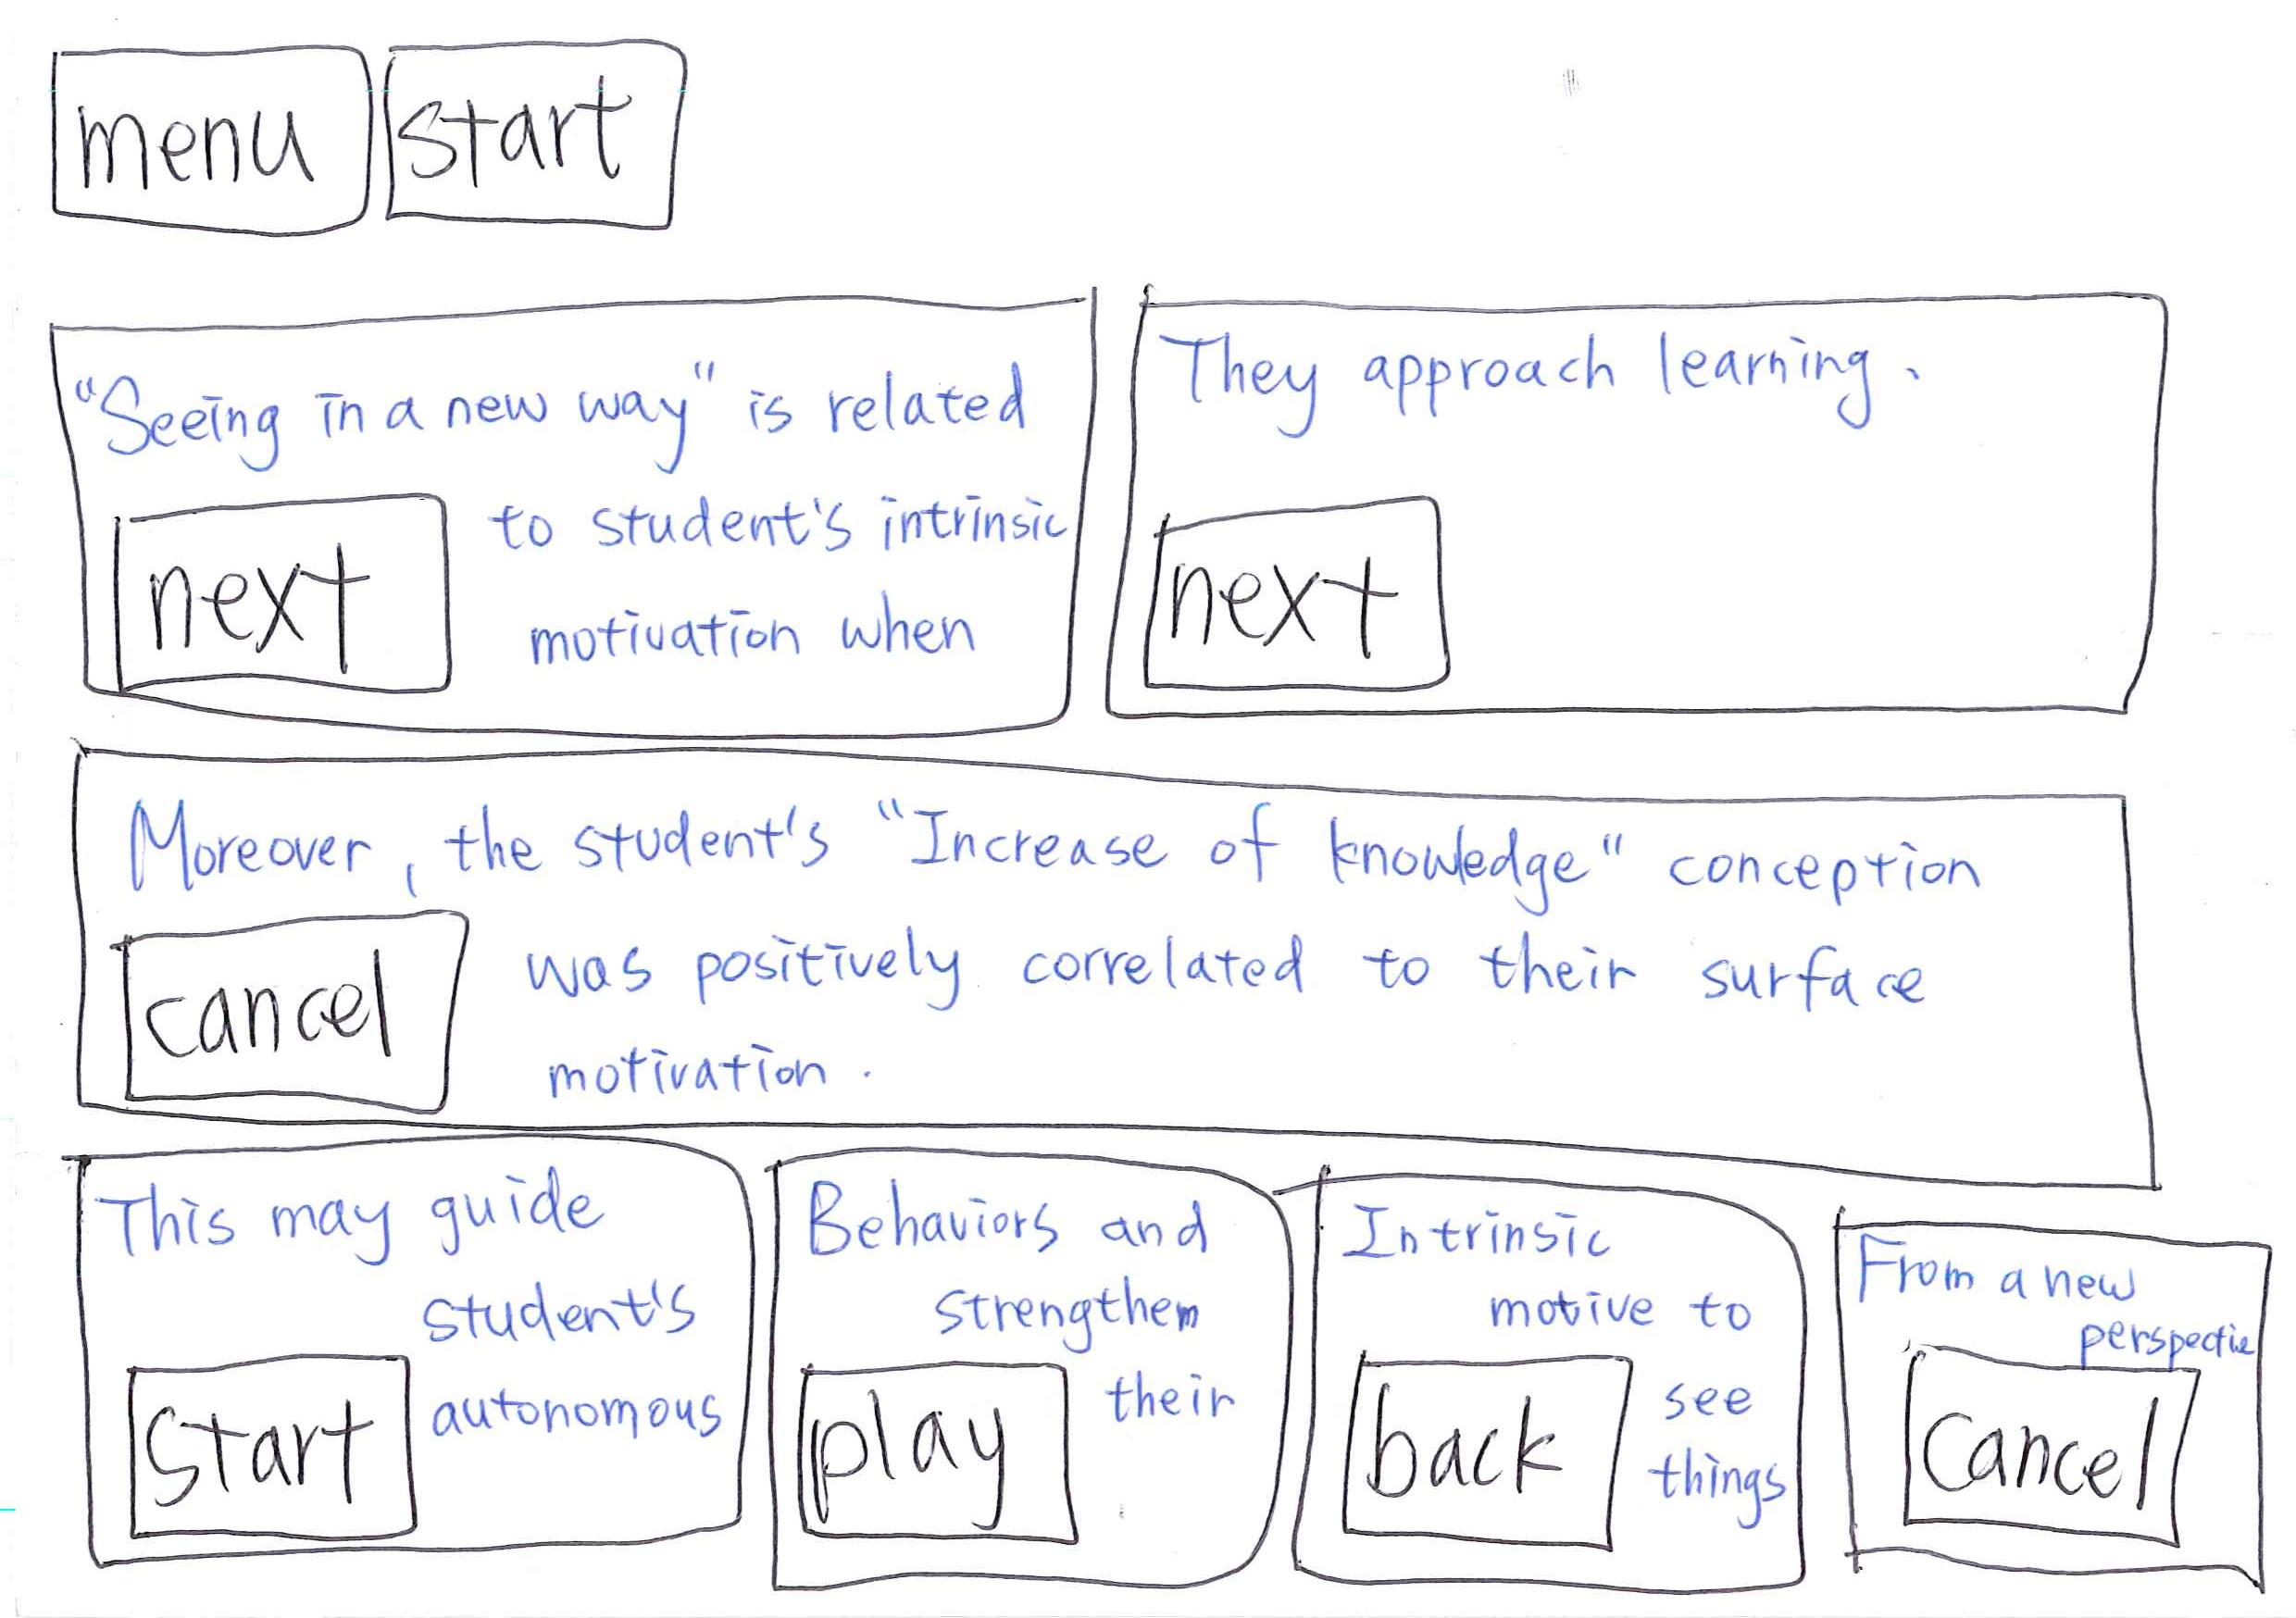 menu start
"Seeing in a new way" is related
to student's intrinsic
next
motivation when
They approach learning.
next
Moreover, the student's "Increase of knowledge" conception
was positively correlated to their surface
cancel
motivation.
This may guide
student's
autonomous
start
Behaviors and
strengthem
their
play
Intrinsic
motive to
see
back
things
From a new
perspectie
cancel